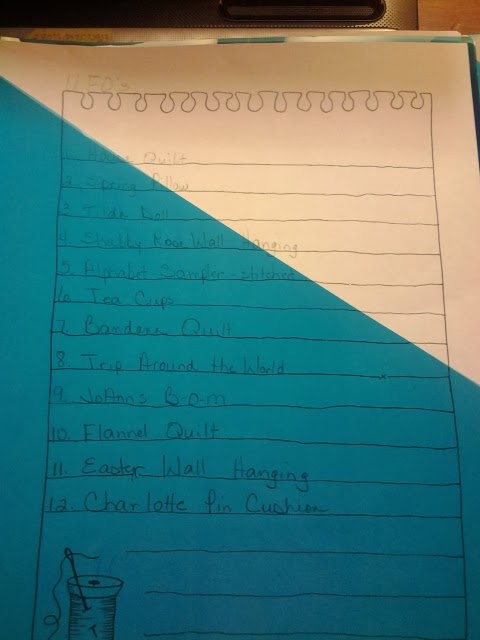 UFO's
1. House Quilt
2. Spring Pillow
3. Tilda Doll
4. Shabby Rose Wall Hanging
5. Alphabet Sampler - stitched
6. Tea Cups
7. Bandana Quilt
8. Trip Around the World
9. JoAnn's B-O-M
10. Flannel Quilt
11. Easter Wall Hanging
12. Charlotte Pin Cushion